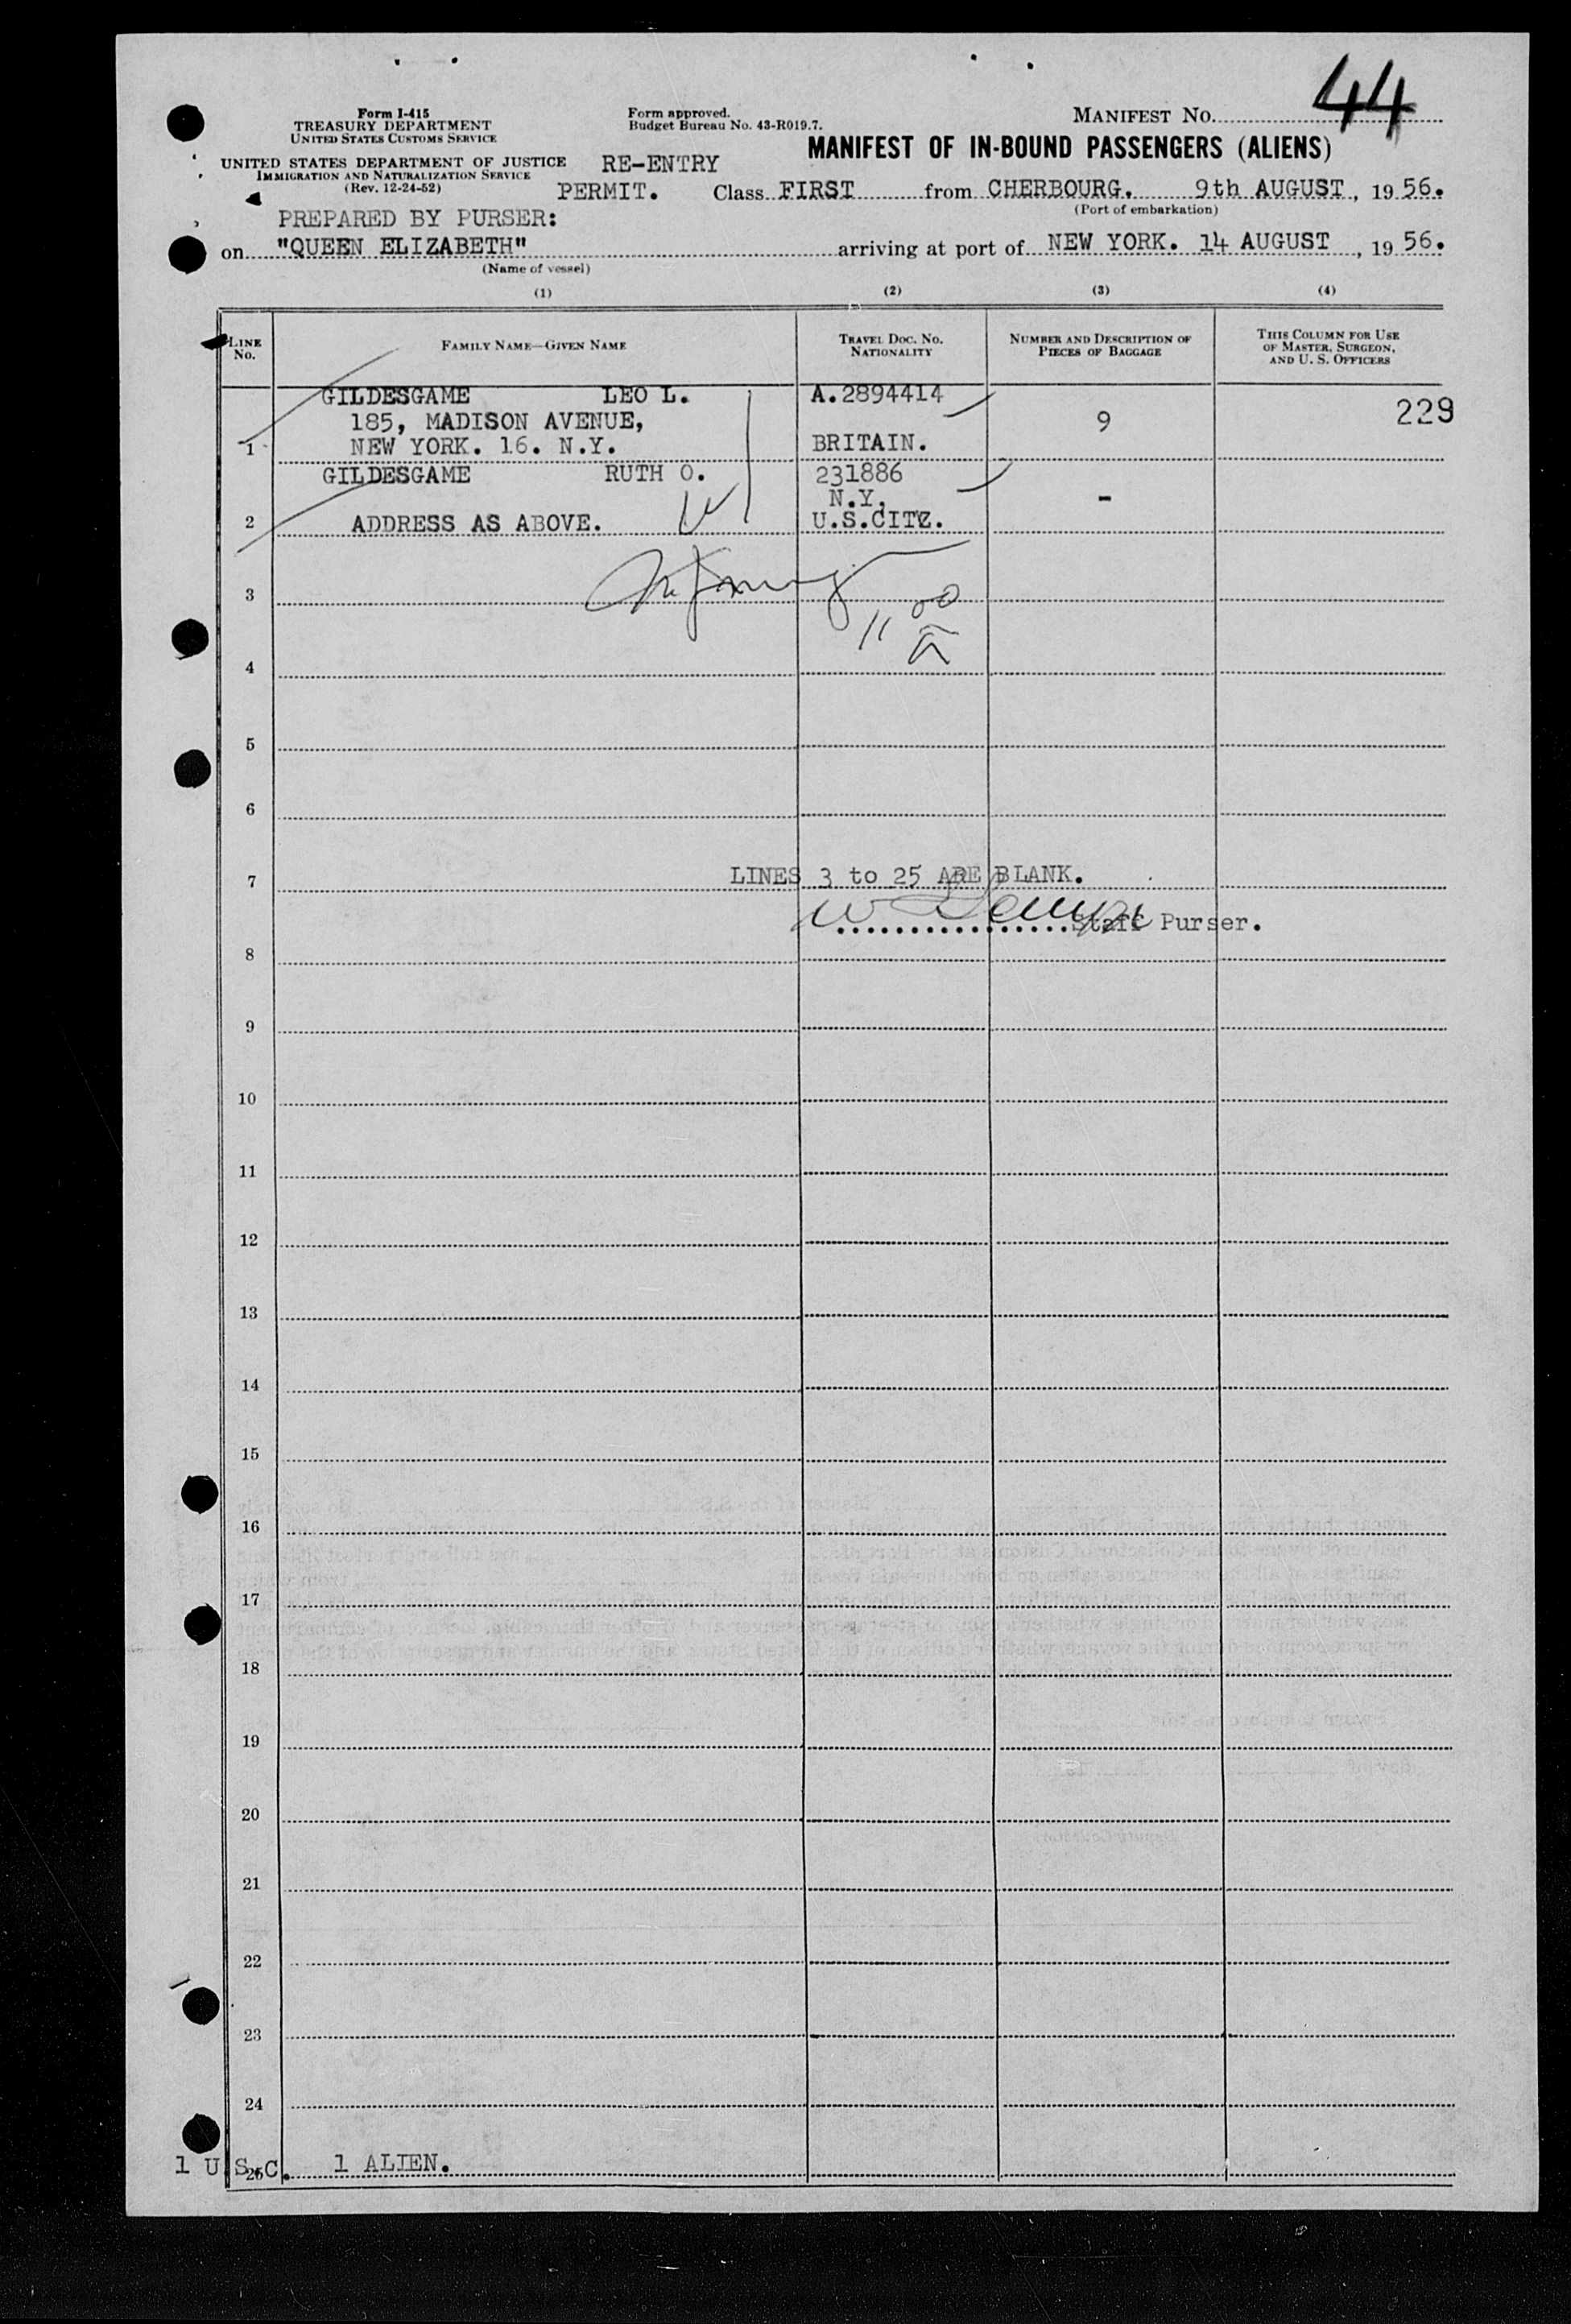 Form I-415
TREASURY DEPARTMENT
UNITED STATES CUSTOMS SERVICE
UNITED STATES DEPARTMENT OF JUSTICE
IMMIGRATION AND NATURALIZATION SERVICE
(Rev. 12-24-52)
Form approved.
Budget Bureau No. 43-R019.7.
MANIFEST No. 44
MANIFEST OF IN-BOUND PASSENGERS (ALIENS)
RE-ENTRY
PERMIT. Class FIRST from CHERBOURG. 9th AUGUST, 19 56.
(Port of embarkation)
PREPARED BY PURSER:
on "QUEEN ELIZABETH" arriving at port of NEW YORK. 14 AUGUST, 19 56.
(Name of vessel)
(1) (2) (3) (4)
LINE No. FAMILY NAME—GIVEN NAME TRAVEL DOC. No. NATIONALITY NUMBER AND DESCRIPTION OF PIECES OF BAGGAGE THIS COLUMN FOR USE OF MASTER, SURGEON, AND U. S. OFFICERS
GILDESGAME LEO L. A.2894414
185, MADISON AVENUE, 9 229
1 NEW YORK. 16. N.Y. BRITAIN.
GILDESGAME RUTH O. 231886
N.Y. -
2 ADDRESS AS ABOVE. U.S.CITZ.
3
11 00
4
5
6
7 LINES 3 to 25 ARE BLANK.
Staff Purser.
8
9
10
11
12
13
14
15
16
17
18
19
20
21
22
23
24
1 U.S.C. 25 1 ALIEN.